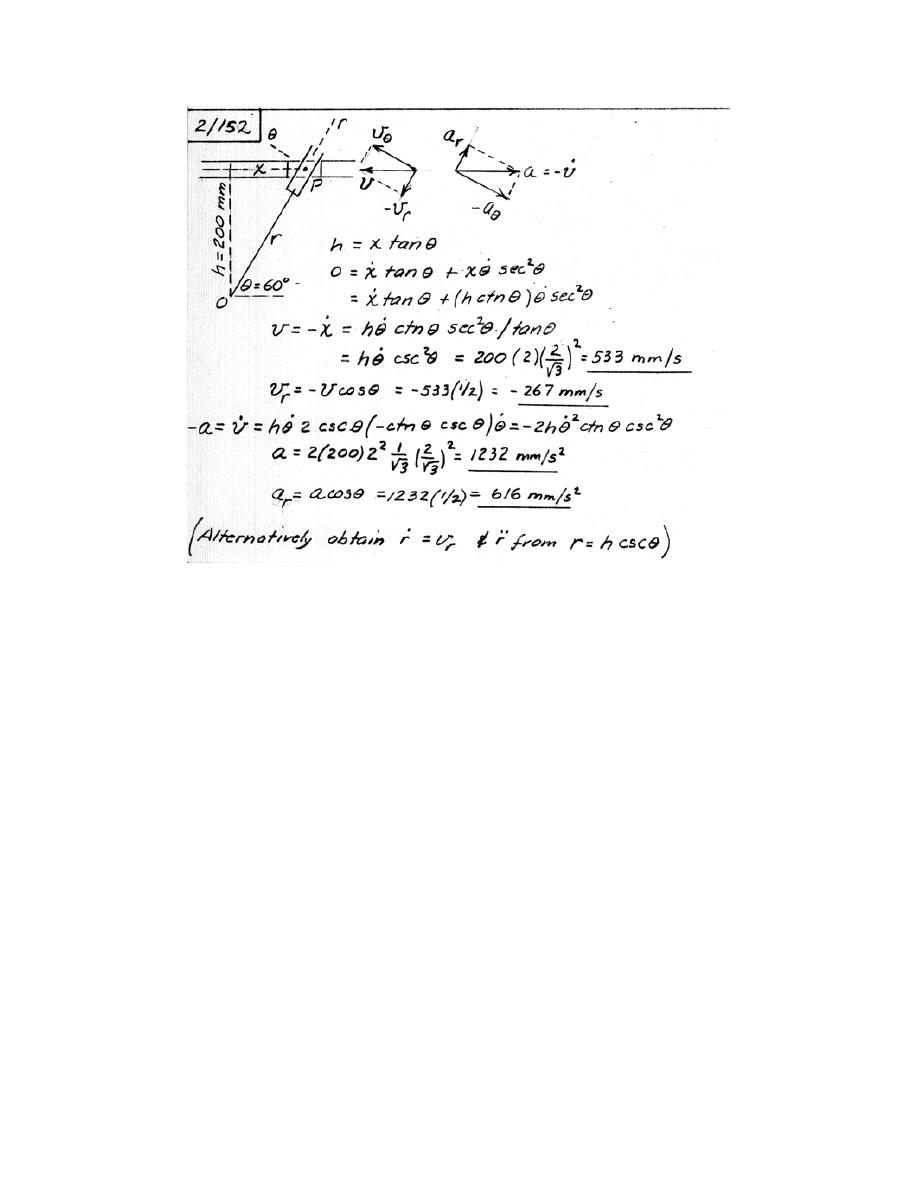 2/152
θ r υ_θ a_r
x P υ a = -υ̇
-υ_r -a_θ
h = 200 mm
r
h = x tan θ
0 = ẋ tan θ + xθ̇ sec²θ
O θ = 60°
= ẋ tan θ + (h ctn θ) θ̇ sec²θ
υ = -ẋ = hθ̇ ctn θ sec²θ / tan θ
= hθ̇ csc²θ = 200 (2)(2/√3)² = 533 mm/s
υ_r = -υ cos θ = -533(1/2) = -267 mm/s
-a = υ̇ = hθ̇ 2 csc θ (-ctn θ csc θ) θ̇ = -2hθ̇² ctn θ csc²θ
a = 2(200)2² 1/√3 (2/√3)² = 1232 mm/s²
a_r = a cos θ = 1232(1/2) = 616 mm/s²
(Alternatively obtain ṙ = υ_r & r̈ from r = h csc θ)